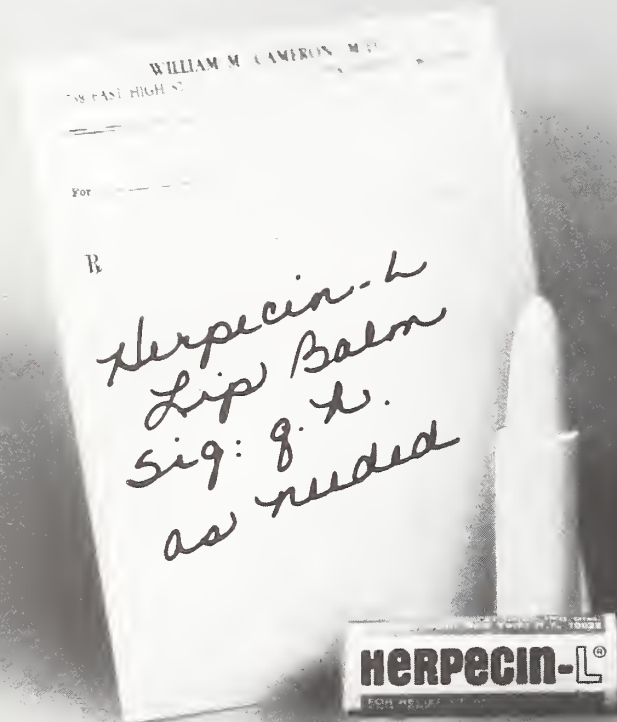 WILLIAM M. CAMERON, M.D.
EAST HIGH ST
For
R
Herpecin-L
Lip Balm
Sig: q.h.
as needed
HERPECIN-L®
FOR RELIEF OF